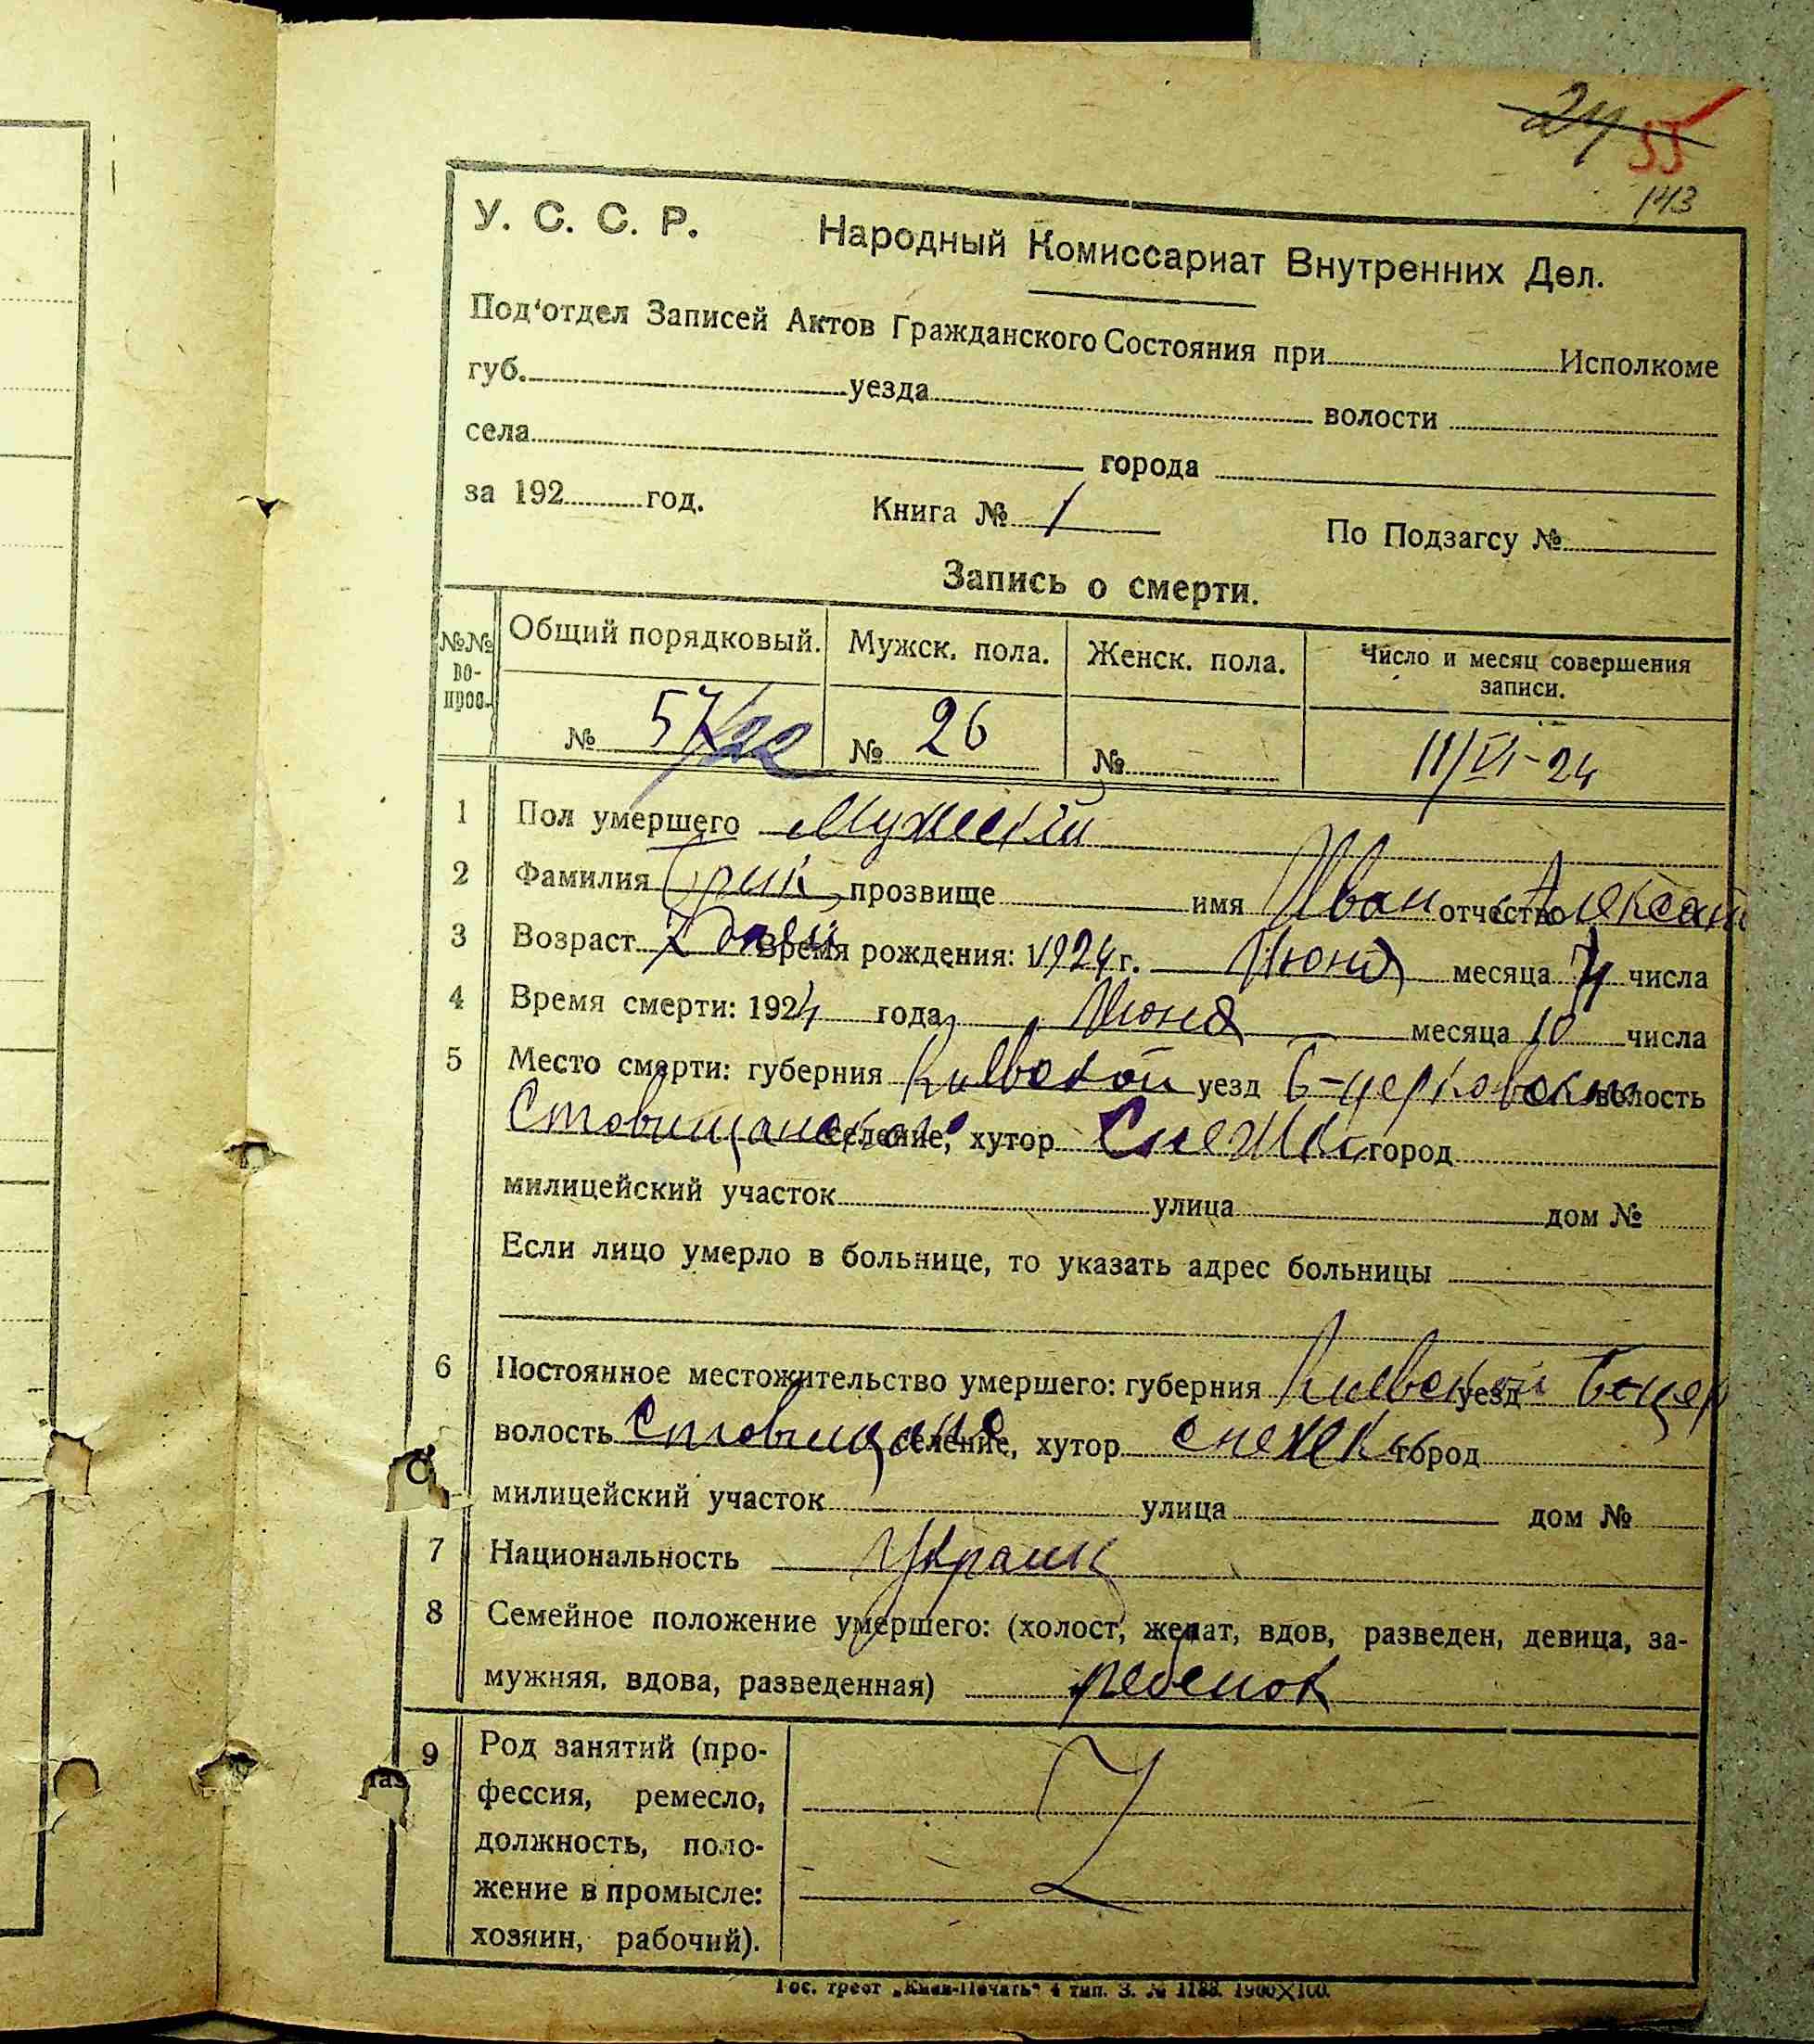 24 55
143
У. С. С. Р. Народный Комиссариат Внутренних Дел.
Под'отдел Записей Актов Гражданского Состояния при Исполкоме
губ. уезда волости
села города
за 192 год. Книга № 1 По Подзагсу №
Запись о смерти.
№№ во- прос. Общий порядковый. Мужск. пола. Женск. пола. Число и месяц совершения записи.
№ 57/22 № 26 № 11/VI-24
1 Пол умершего Мужской
2 Фамилия прозвище имя Иван отчество Алексан
3 Возраст дней Время рождения: 1924 г. Июня месяца числа
4 Время смерти: 1924 года Июня месяца 10 числа
5 Место смерти: губерния Киевской уезд Б-церковский волость
Ставищанской селение, хутор Снежки город
милицейский участок улица дом №
Если лицо умерло в больнице, то указать адрес больницы
6 Постоянное местожительство умершего: губерния Киевской уезд Б-цер
волость Ставищанс селение, хутор Снежки город
милицейский участок улица дом №
7 Национальность Украин
8 Семейное положение умершего: (холост, женат, вдов, разведен, девица, за-
мужняя, вдова, разведенная) ребенок
9 Род занятий (про-
фессия, ремесло,
должность, поло-
жение в промысле:
хозяин, рабочий).
Гос. трест „Киев-Печать" 4 тип. З. № 1188. 1900×100.